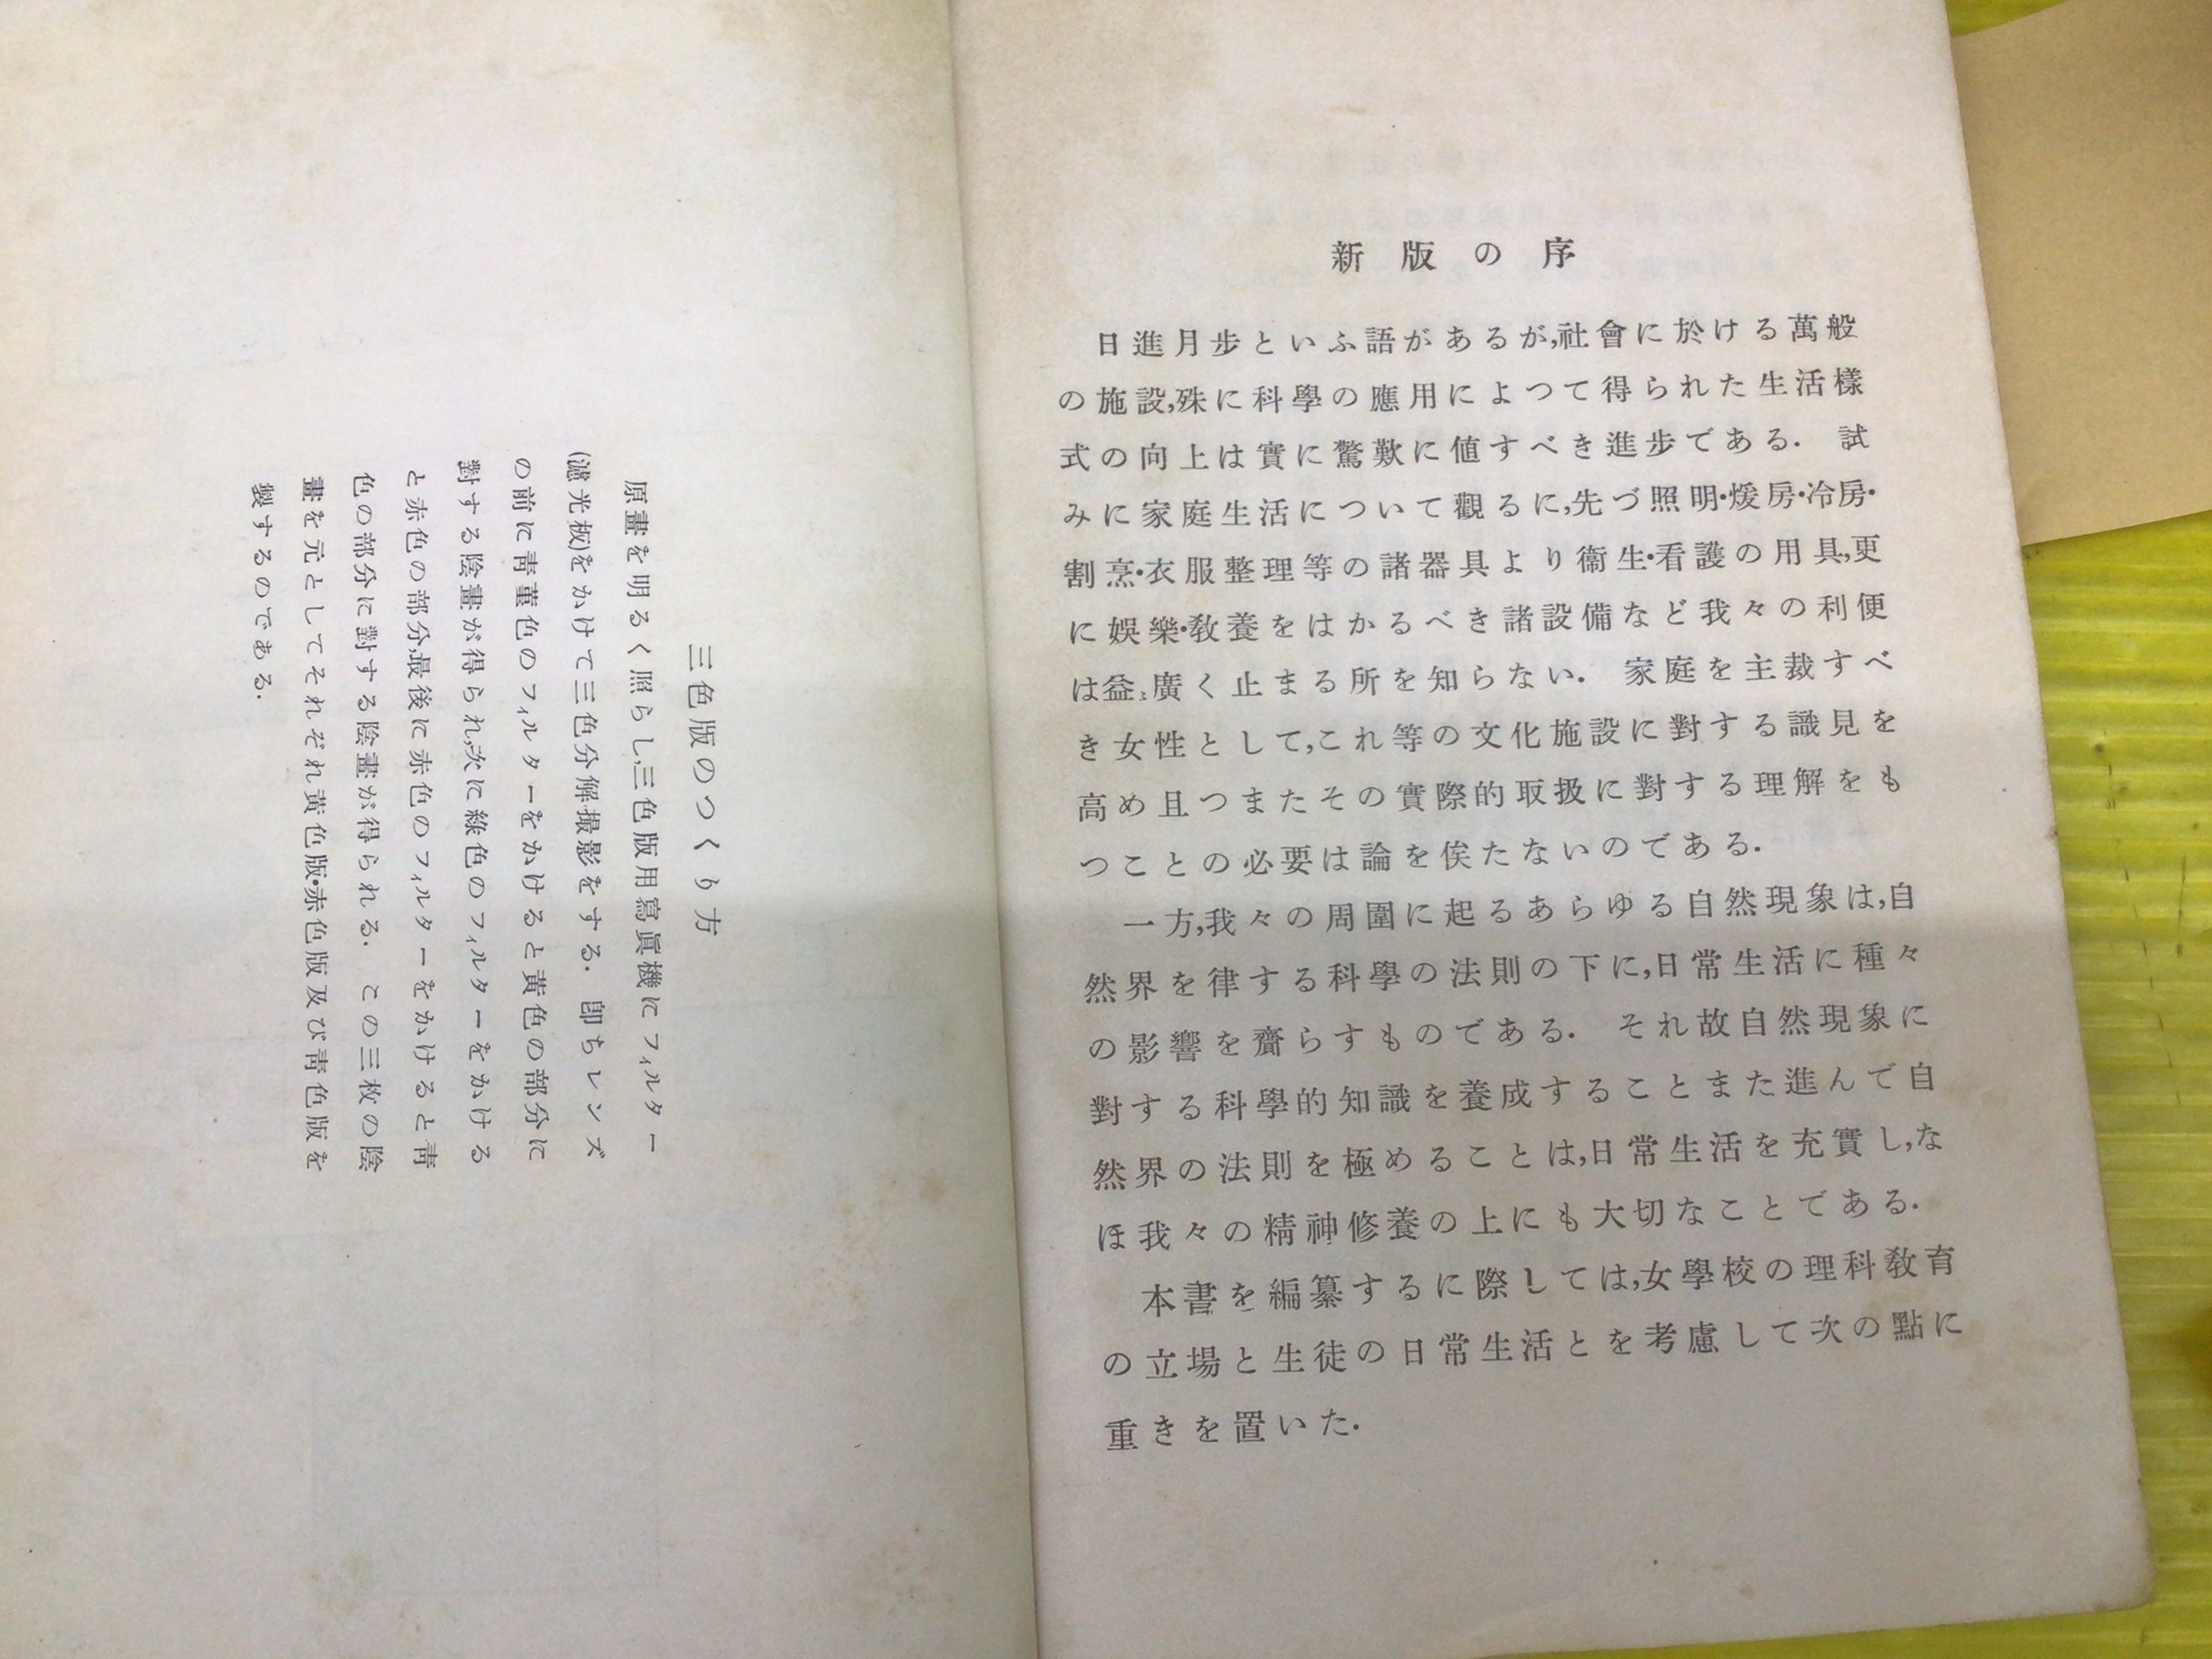 三色版のつくり方
原畫を明るく照らし,三色版用寫眞機にフィルター
(濾光板)をかけて三色分解撮影をする. 卽ちレンズ
の前に靑菫色のフィルターをかけると黃色の部分に
對する陰畫が得られ,次に綠色のフィルターをかける
と赤色の部分,最後に赤色のフィルターをかけると靑
色の部分に對する陰畫が得られる. この三枚の陰
畫を元としてそれぞれ黃色版・赤色版及び靑色版を
製するのである.
新版の序
日進月步といふ語があるが,社會に於ける萬般
の施設,殊に科學の應用によつて得られた生活樣
式の向上は實に驚歎に値すべき進步である. 試
みに家庭生活について觀るに,先づ照明・煖房・冷房・
割烹・衣服整理等の諸器具より衞生・看護の用具,更
に娛樂・敎養をはかるべき諸設備など我々の利便
は益〻廣く止まる所を知らない. 家庭を主裁すべ
き女性として,これ等の文化施設に對する識見を
高め且つまたその實際的取扱に對する理解をも
つことの必要は論を俟たないのである.
一方,我々の周圍に起るあらゆる自然現象は,自
然界を律する科學の法則の下に,日常生活に種々
の影響を齎らすものである. それ故自然現象に
對する科學的知識を養成することまた進んで自
然界の法則を極めることは,日常生活を充實し,な
ほ我々の精神修養の上にも大切なことである.
本書を編纂するに際しては,女學校の理科敎育
の立場と生徒の日常生活とを考慮して次の點に
重きを置いた.